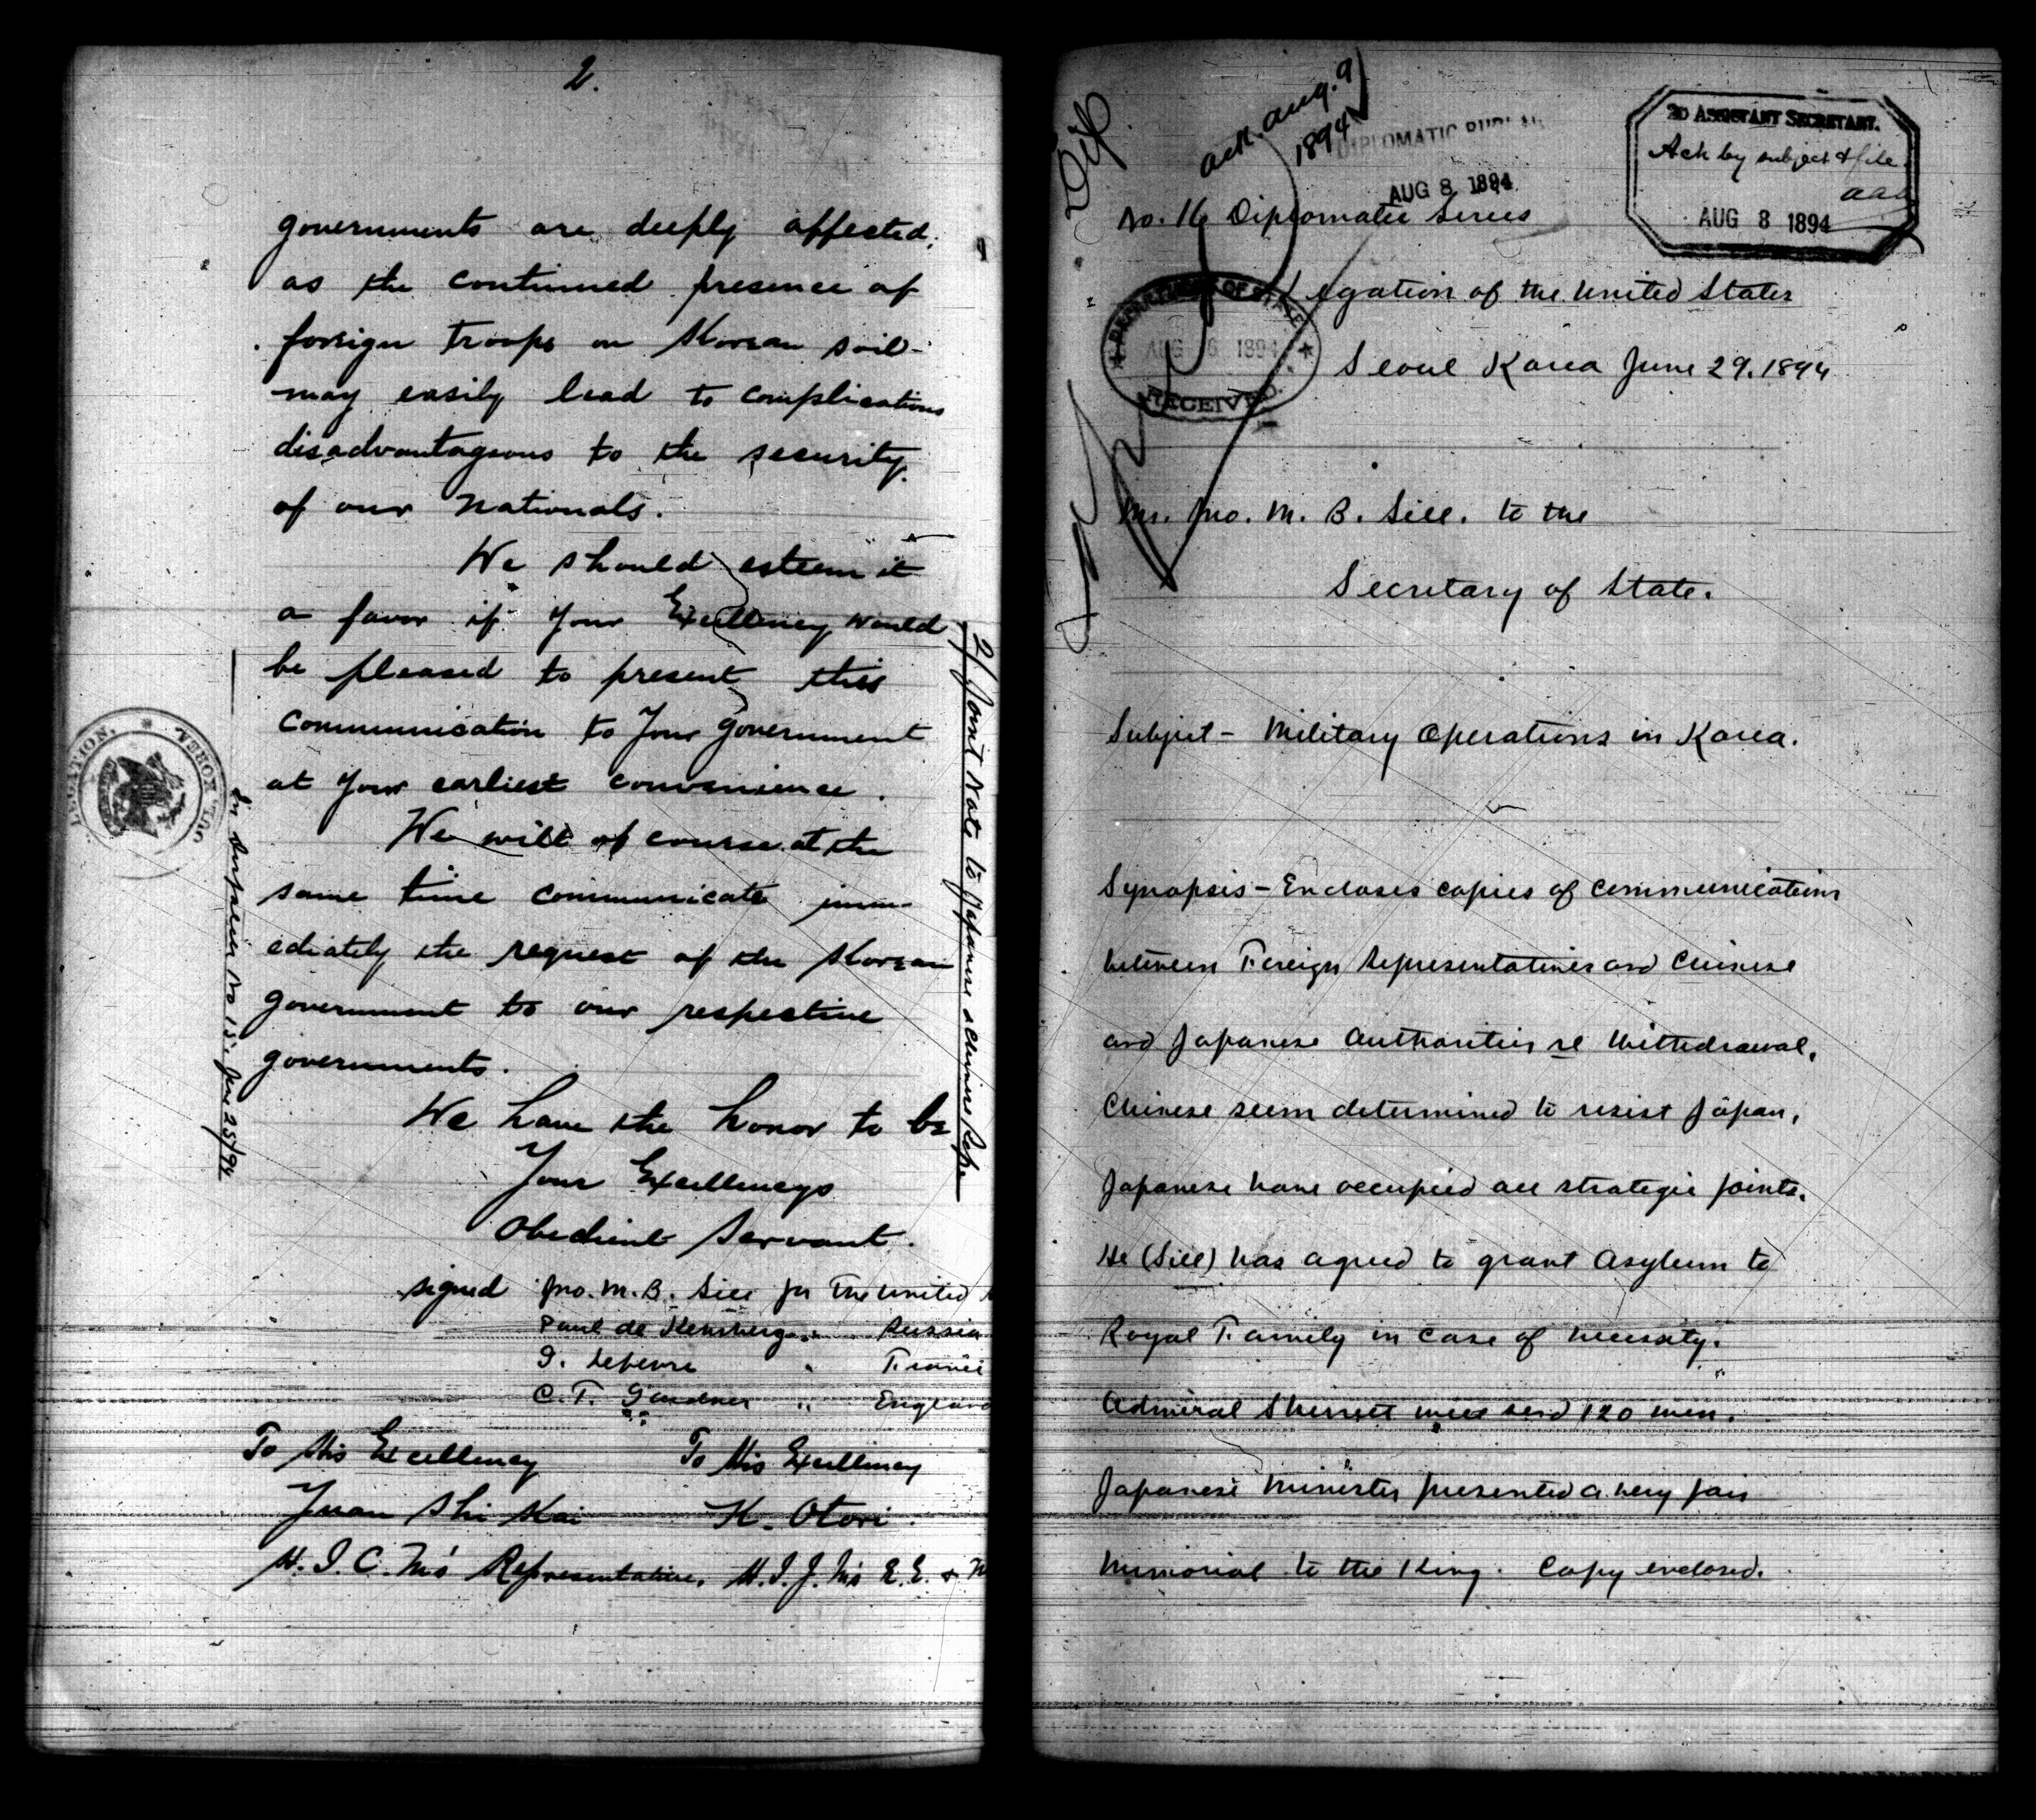 2.
governments are deeply affected,
as the continued presence of
foreign troops on Korean soil
may easily lead to complications
disadvantageous to the security
of our nationals.
We should esteem it
a favor if Your Excellency would
be pleased to present this
communication to Your government
at your earliest convenience.
We will of course at the
same time communicate imm-
ediately the request of the Korean
government to our respective
governments.
We have the honor to be
Your Excellencys
Obedient Servant.
signed Jno. M. B. Sill for The United
Paul de Kehrberg " Russia
G. Lefevre " France
C. T. Gardner " England
To His Excellency To His Excellency
Yuan Shi Kai K. Otori.
H. I. C. M's Representative. H. I. J. M's E. E. &
2/ Joint Note to Japanese & Chinese Reps
In Despatch No 15, June 25/94
LEGATION.
Dip
ack. Aug. 9/
1894
DIPLOMATIC BUREAU
AUG 8 1894
2D ASSISTANT SECRETARY.
Ack by subject & file.
aaa
AUG 8 1894
No. 16 Diplomatic Series
DEPARTMENT OF STATE
AUG 6 1894
RECEIVED.
Legation of the United States
Seoul Korea June 29. 1894
Mr. Jno. M. B. Sill. to the
Secretary of State.
Subject - Military Operations in Korea.
Synopsis - Encloses copies of communications
between Foreign Representatives and Chinese
and Japanese Authorities re Withdrawal,
Chinese seem determined to resist Japan,
Japanese have occupied all strategic points.
He (Sill) has agreed to grant Asylum to
Royal Family in case of necessity.
Admiral Skerrett will send 120 men.
Japanese Minister presented a very fair
Memorial to the King. Copy enclosed.